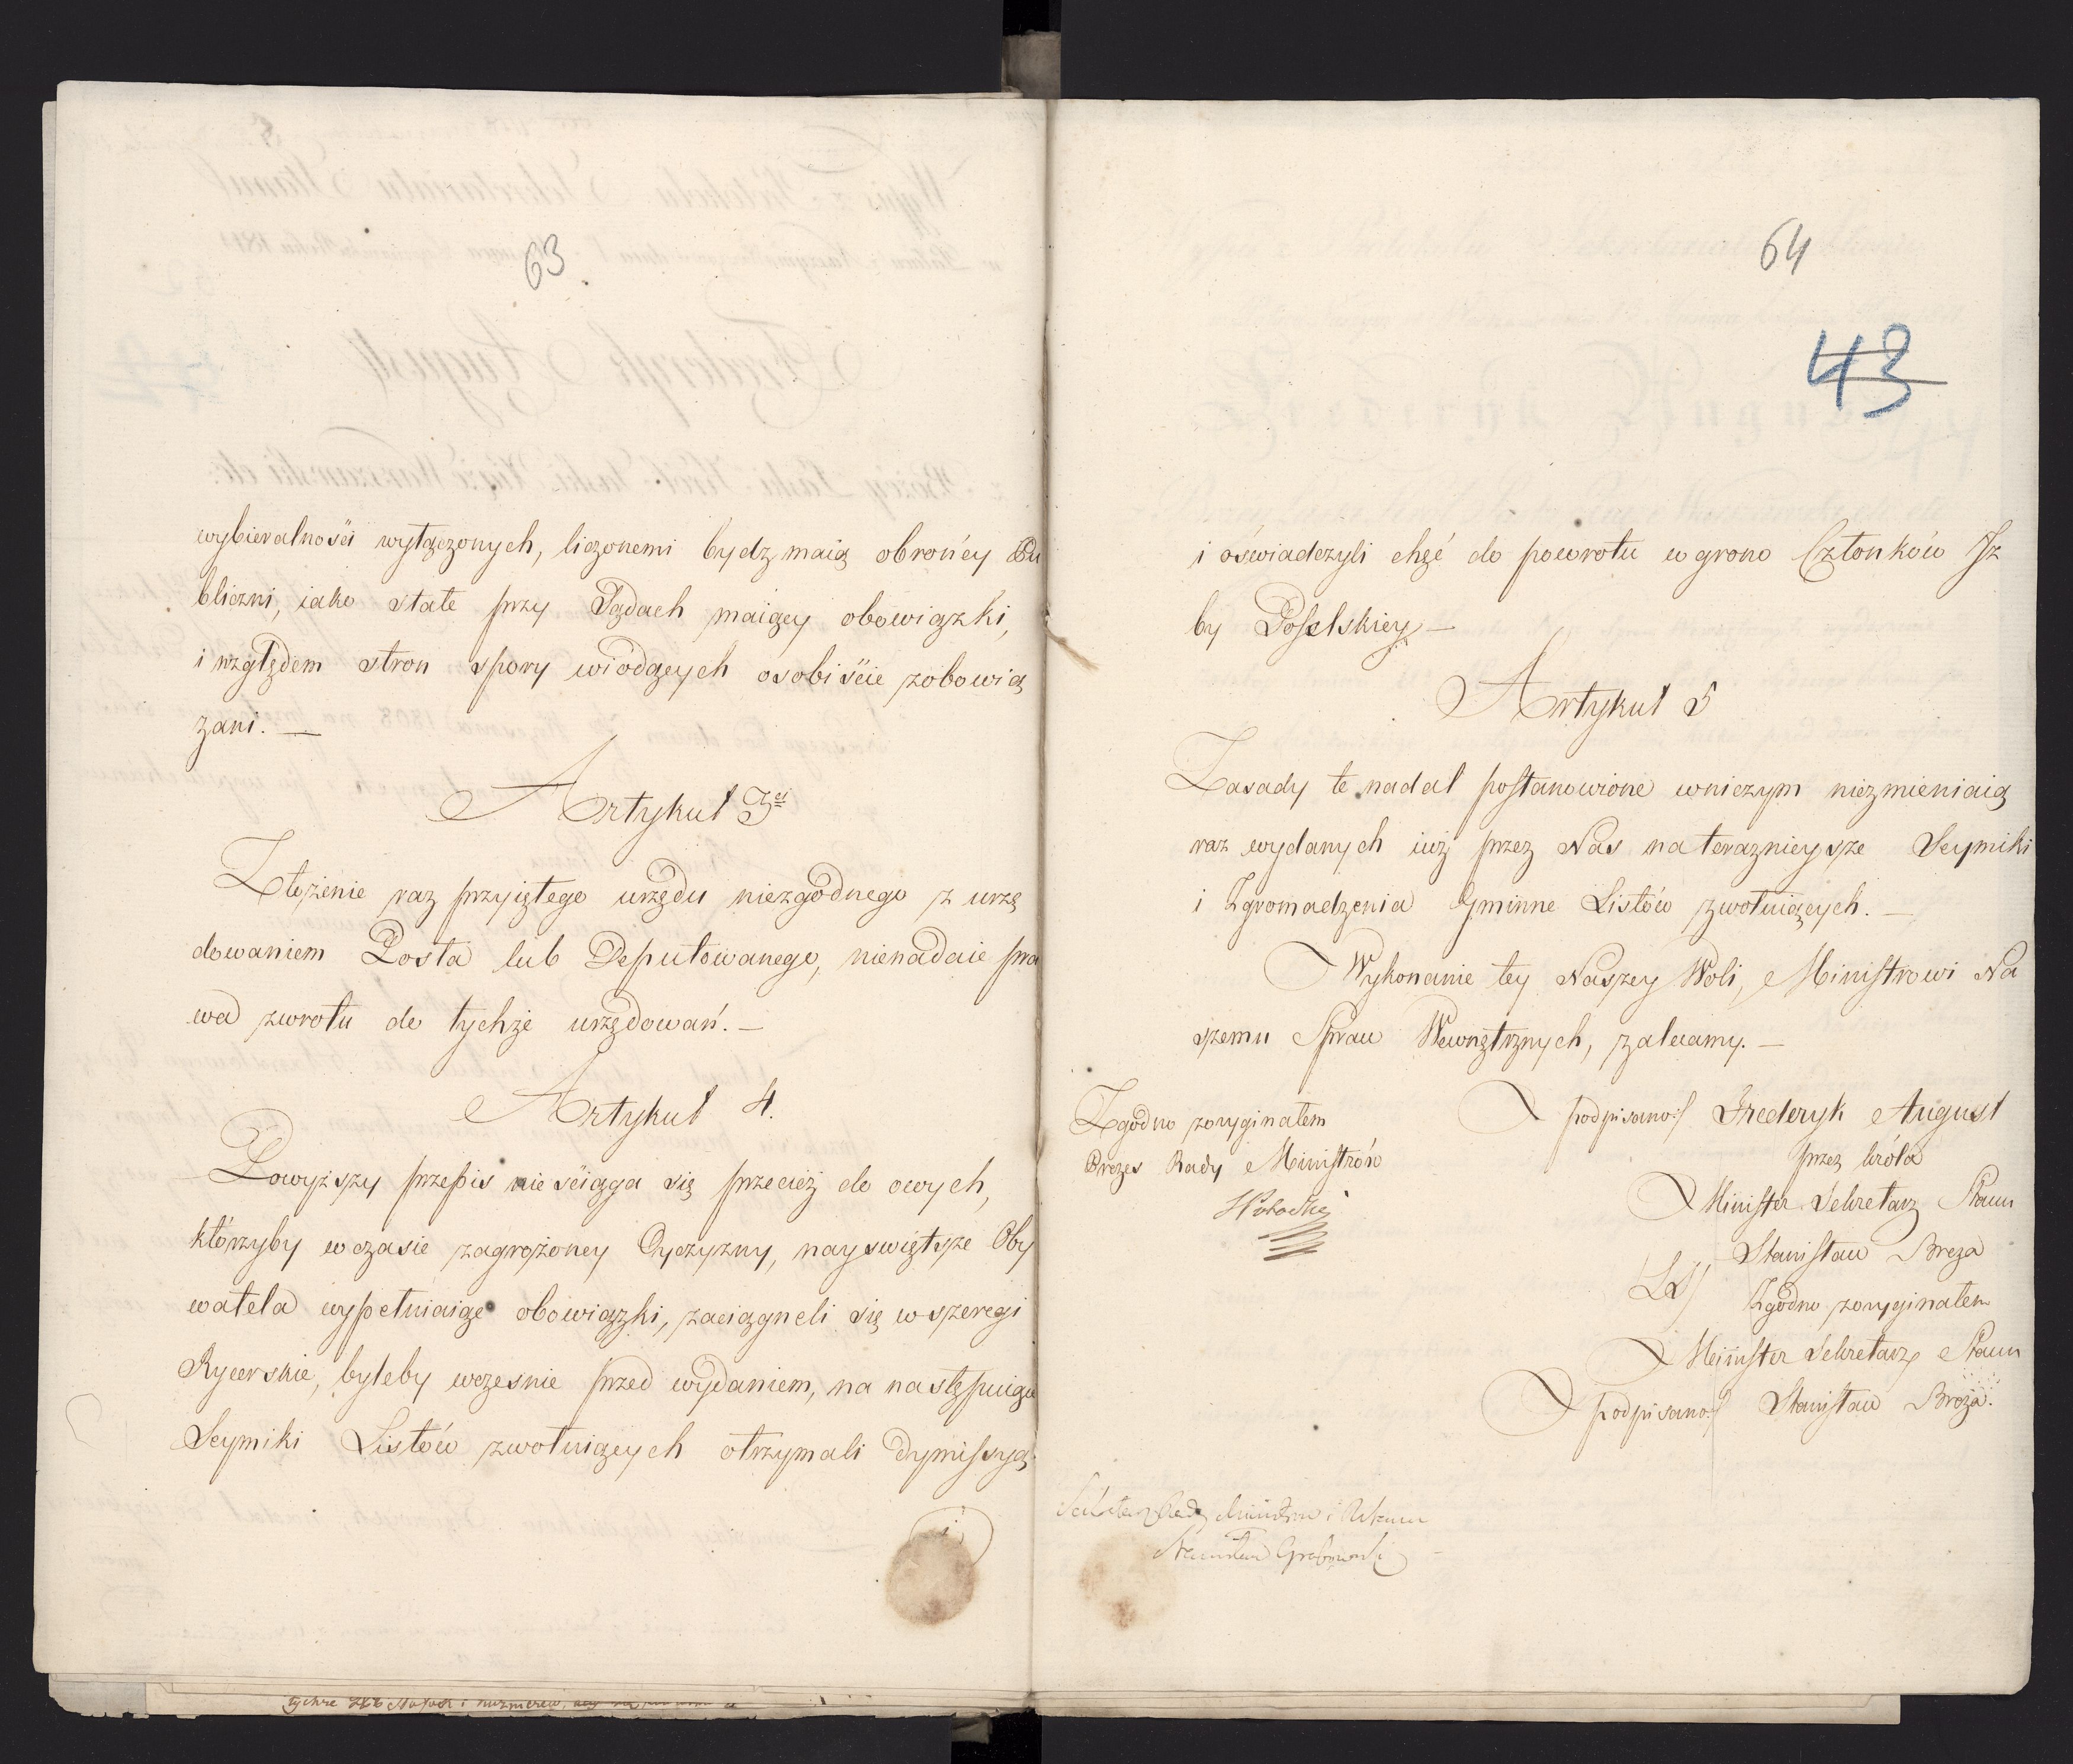 63
wybieralności wyłączonych, liczonemi bydz maią obrońcy Pu
bliczni, iako stałe przy Sądach maiący obowiązki,
i względem stron spory wiodących osobiście zobowią
zani. —
Artykuł 3ci
Złożenie raz przyiętego urzędu niezgodnego z urzę
dowaniem Posła lub Deputowanego, nienadaie pra
wa zwrotu do tychże urzędowań. —
Artykuł 4.
Powyższy przepis nie ściąga się przecież do owych,
którzyby w czasie zagrożoney Oyczyzny, nayswiętsze Oby
watela wypełniaiąc obowiązki, zaciągneli się w szeregi
Rycerskie, byleby wczesnie przed wydaniem, na następuiące
Seymiki Listów zwołuiących otrzymali Dymissyą
i
64
43
i oświadczyli chęć do powrotu w grono Członków Iz
by Poselskiey —
Artykuł 5
Zasady te nadal postanowione wniczym niezmieniaią
raz wydanych iuż przez Nas na teraznieysze Seymiki
i Zgromadzenia Gminne Listów zwołuiących. —
Wykonanie tey Naszey Woli, Ministrowi Na
szemu Spraw Wewnętrznych, zalecamy. —
podpisano: Frederyk August
przez króla
Minister Sekretarz Stanu
Stanisław Breza
LS
Zgodno zoryginałem
Minister Sekretarz Stanu
podpisano: Stanisław Breza.
Zgodno zoryginałem
Prezes Rady Ministrów
SPotocki
Sekretarz Rady Ministrów i R Stanu
Stanisław Grabowski